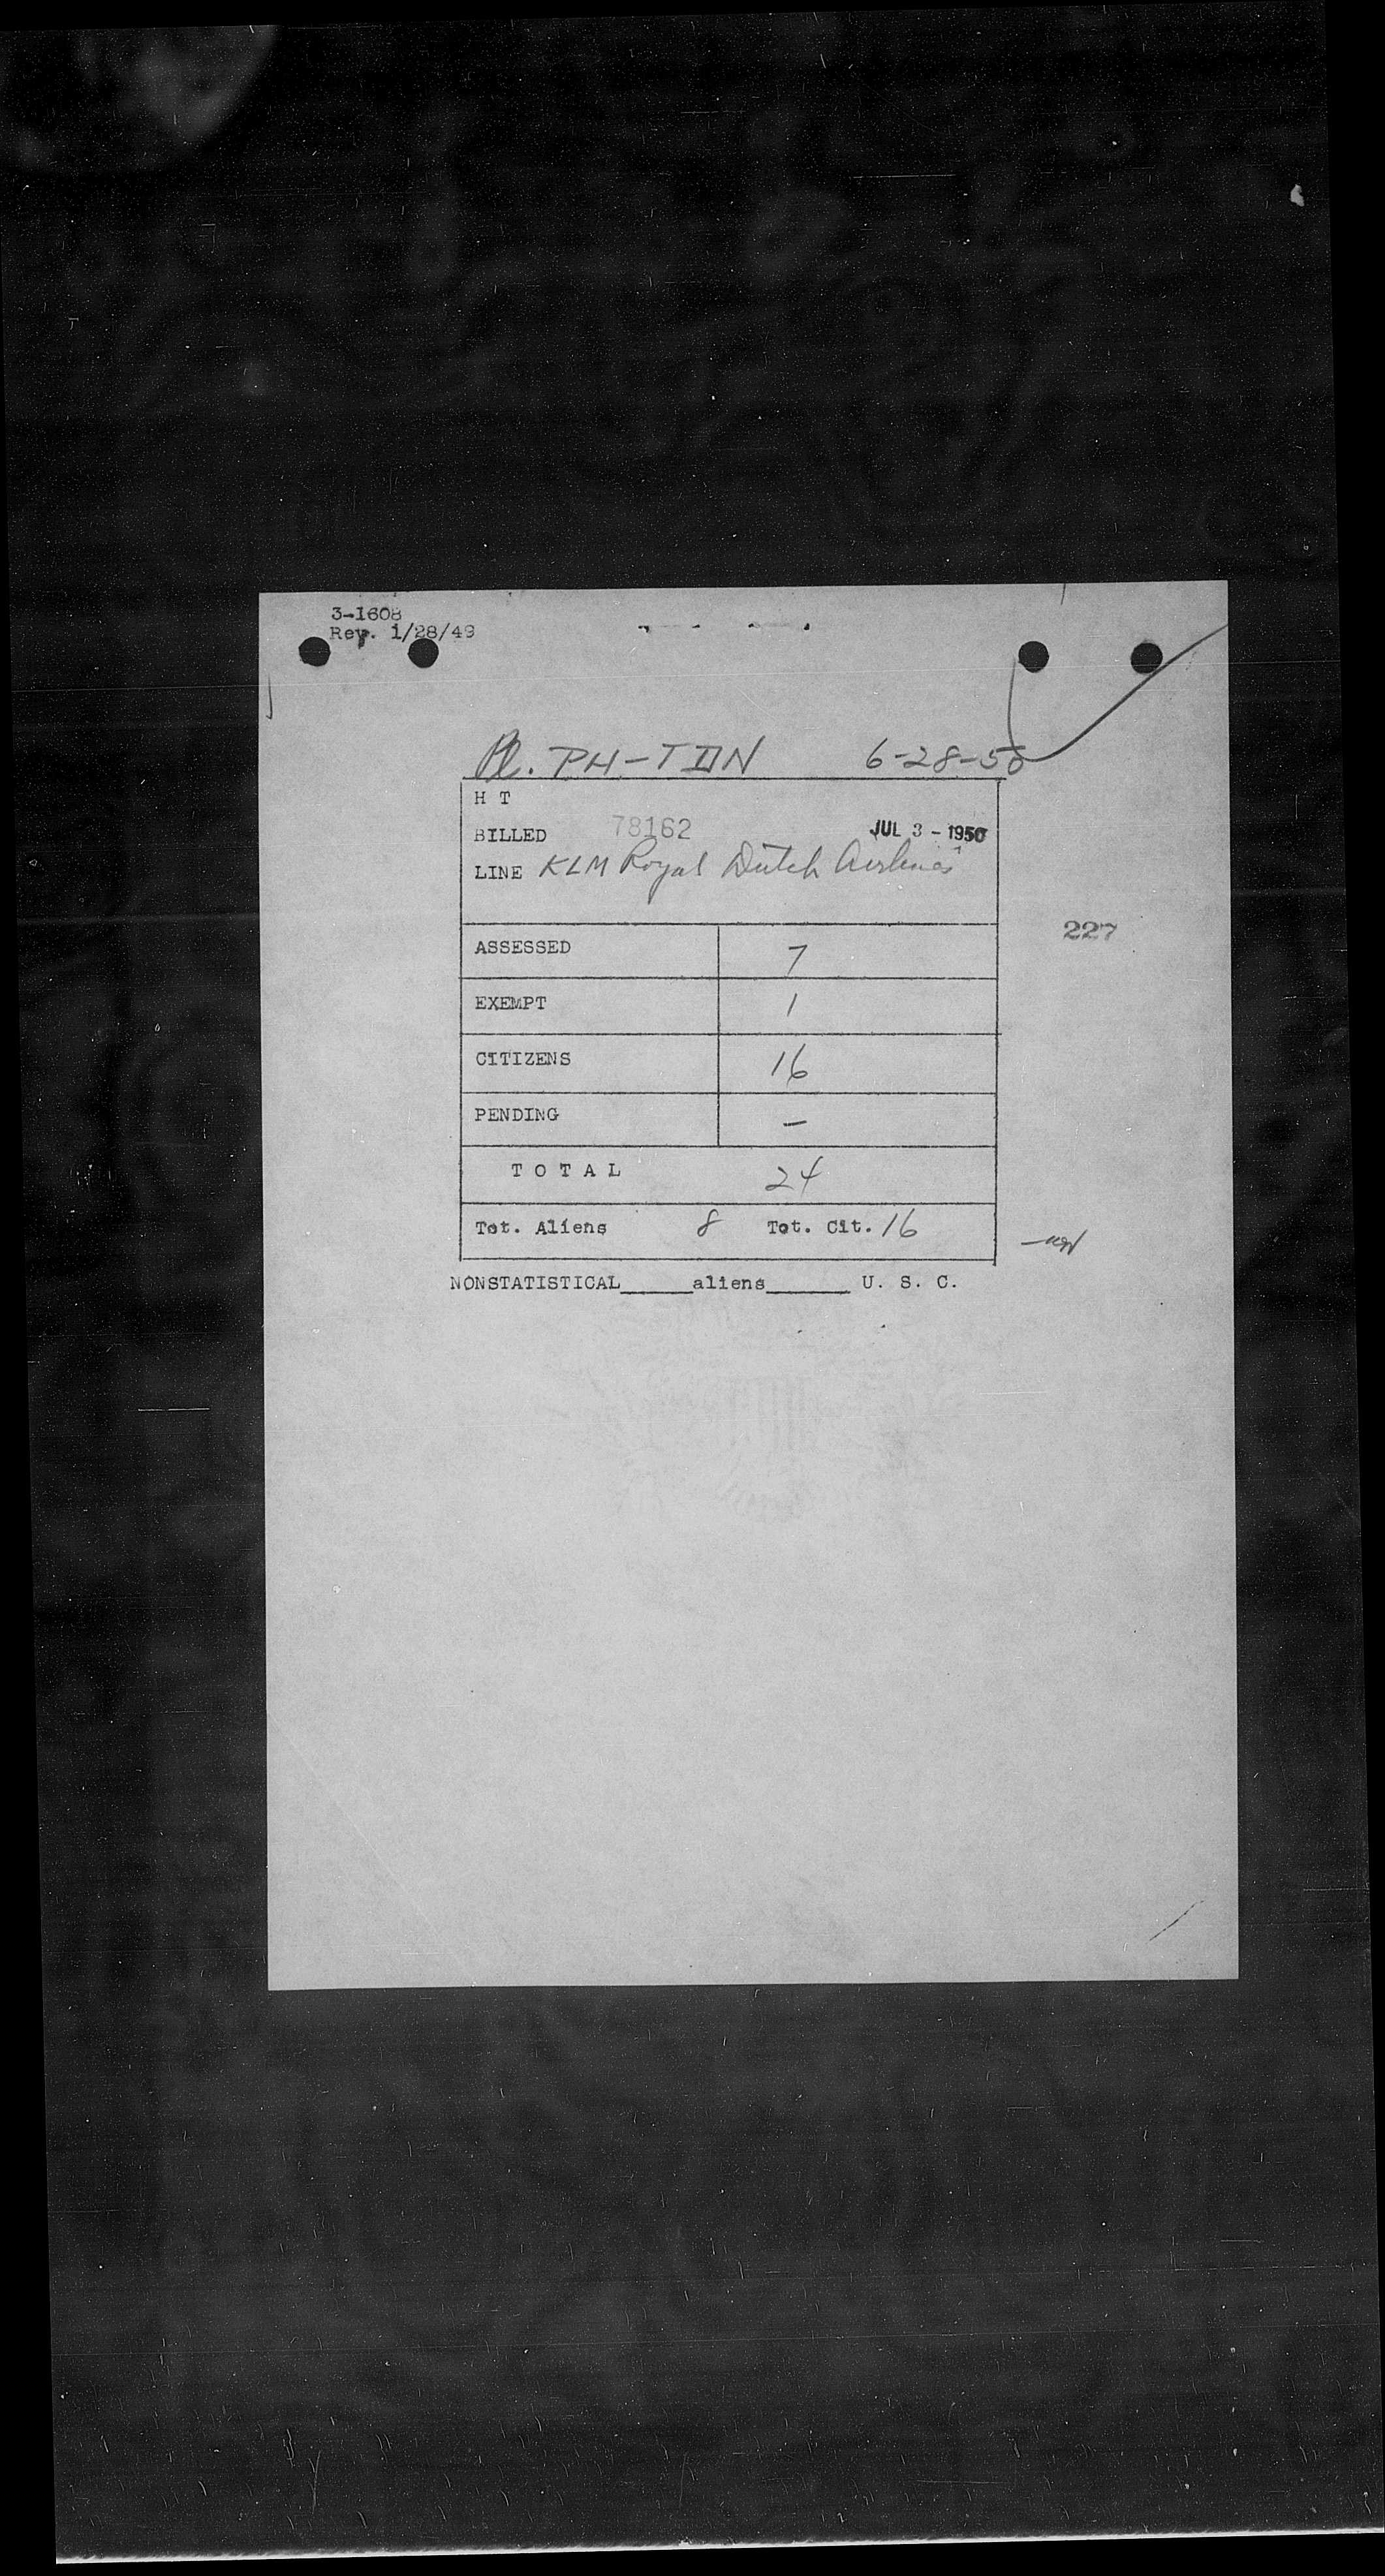 3-1608
Rev. 1/28/49
Pl. PH-TDN 6-28-50
H T
BILLED 78162 JUL 3 - 1950
LINE KLM Royal Dutch Airlines
227
ASSESSED 7
EXEMPT 1
CITIZENS 16
PENDING -
T O T A L 24
Tot. Aliens 8 Tot. Cit. 16
NONSTATISTICAL_____aliens______ U. S. C.